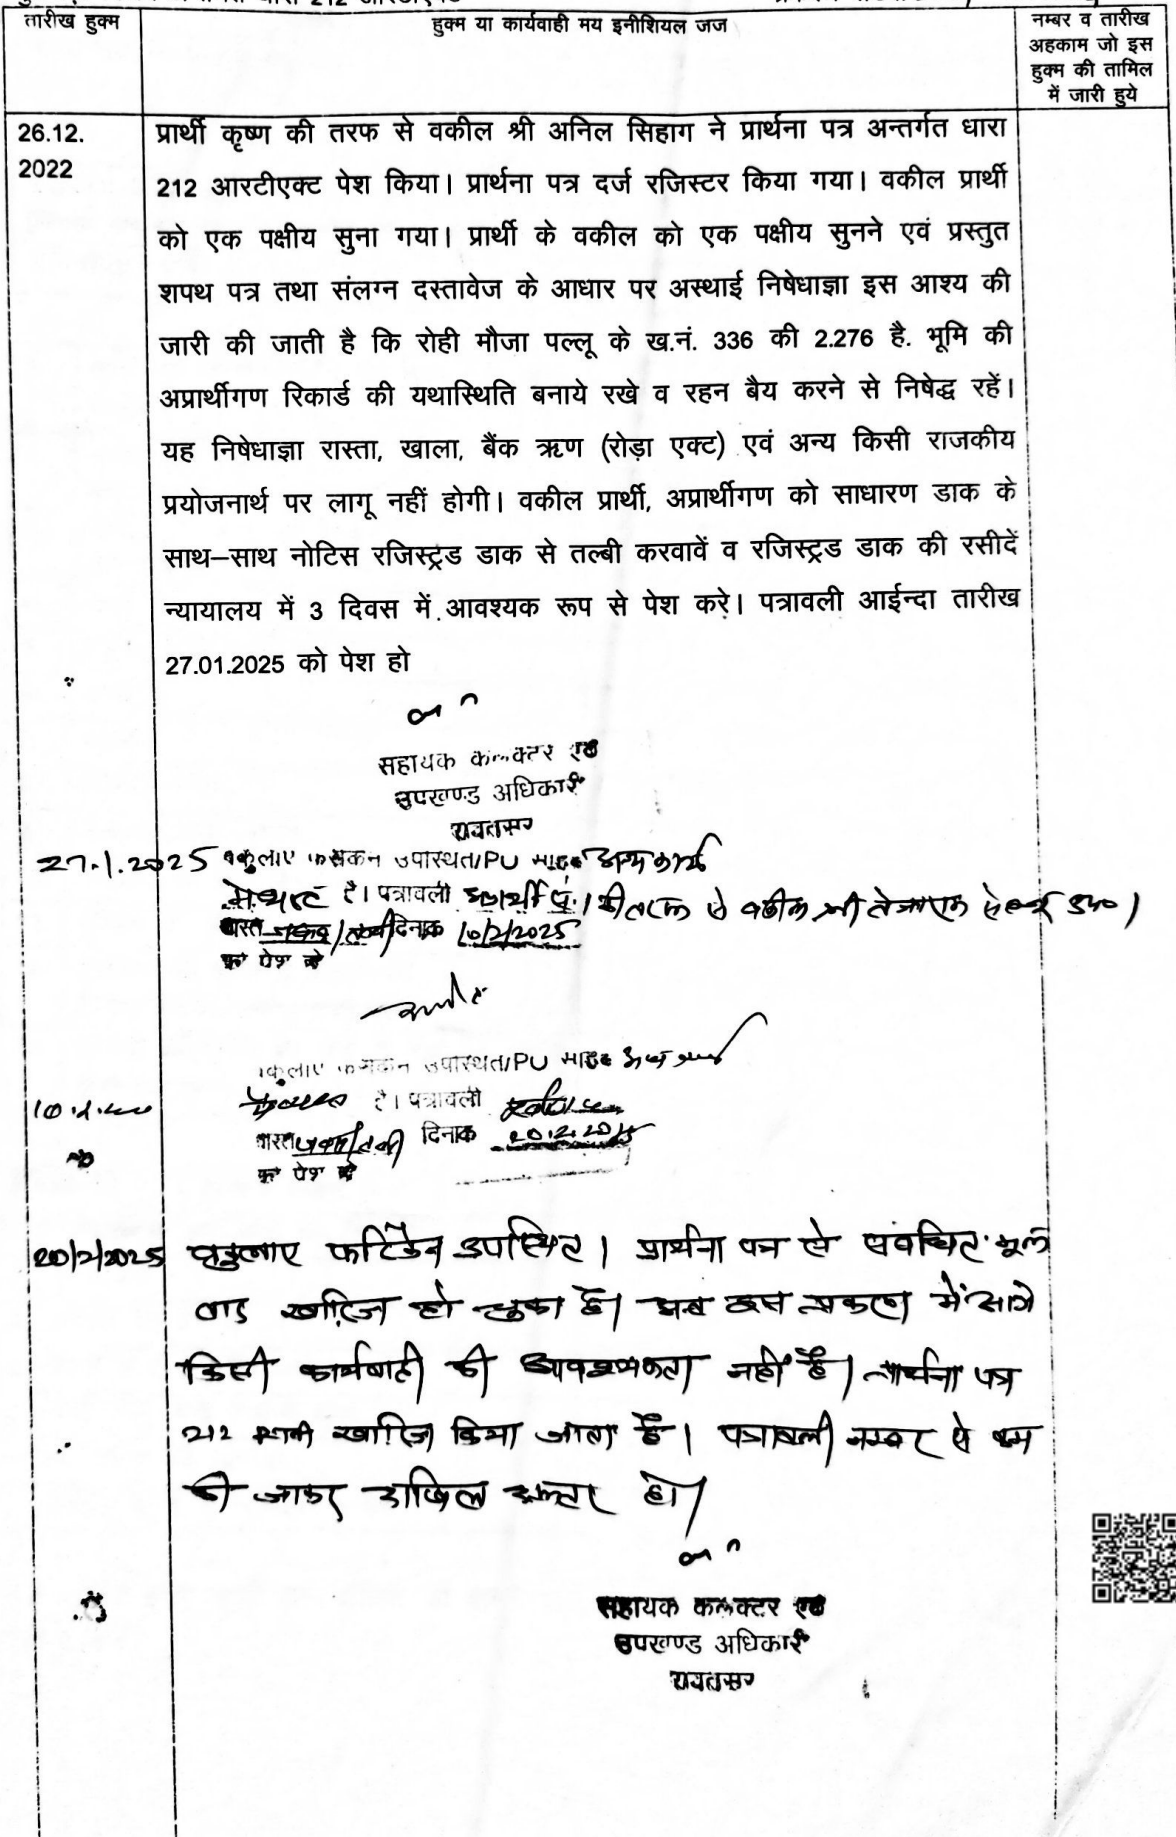 तारीख हुक्म
हुक्म या कार्यवाही मय इनीशियल जज
नम्बर व तारीख
अहकाम जो इस
हुक्म की तामिल
में जारी हुये
26.12.
2022
प्रार्थी कृष्ण की तरफ से वकील श्री अनिल सिहाग ने प्रार्थना पत्र अन्तर्गत धारा
212 आरटीएक्ट पेश किया। प्रार्थना पत्र दर्ज रजिस्टर किया गया। वकील प्रार्थी
को एक पक्षीय सुना गया। प्रार्थी के वकील को एक पक्षीय सुनने एवं प्रस्तुत
शपथ पत्र तथा संलग्न दस्तावेज के आधार पर अस्थाई निषेधाज्ञा इस आश्य की
जारी की जाती है कि रोही मौजा पल्लू के ख.नं. 336 की 2.276 है. भूमि की
अप्रार्थीगण रिकार्ड की यथास्थिति बनाये रखे व रहन बैय करने से निषेद्ध रहें।
यह निषेधाज्ञा रास्ता, खाला, बैंक ऋण (रोड़ा एक्ट) एवं अन्य किसी राजकीय
प्रयोजनार्थ पर लागू नहीं होगी। वकील प्रार्थी, अप्रार्थीगण को साधारण डाक के
साथ–साथ नोटिस रजिस्ट्रड डाक से तल्बी करवावें व रजिस्ट्रड डाक की रसीदें
न्यायालय में 3 दिवस में आवश्यक रूप से पेश करे। पत्रावली आईन्दा तारीख
27.01.2025 को पेश हो
सहायक कलक्टर एवं
उपखण्ड अधिकारी
रावतसर
27.1.2025 वकुलाए फरीकेन उपस्थित/PU साहब अन्य कार्य
है। पत्रावली
वास्ते दिनांक 10/2/2025
को पेश हो
वकुलाए फरीकेन उपस्थित/PU साहब अन्य कार्य
है। पत्रावली
वास्ते दिनांक 20.2.2025
को पेश हो
20/2/2025 वकुलाए फरिकेन उपस्थित। प्रार्थना पत्र से संबंधित मूल
वाद खारिज हो चुका है। अब इस प्रकरण में आगे
किसी कार्यवाही की आवश्यकता नहीं है। प्रार्थना पत्र
212 खारिज किया जाता है। पत्रावली नम्बर से कम
की जाकर दाखिल दफ्तर हो।
सहायक कलक्टर एवं
उपखण्ड अधिकारी
रावतसर